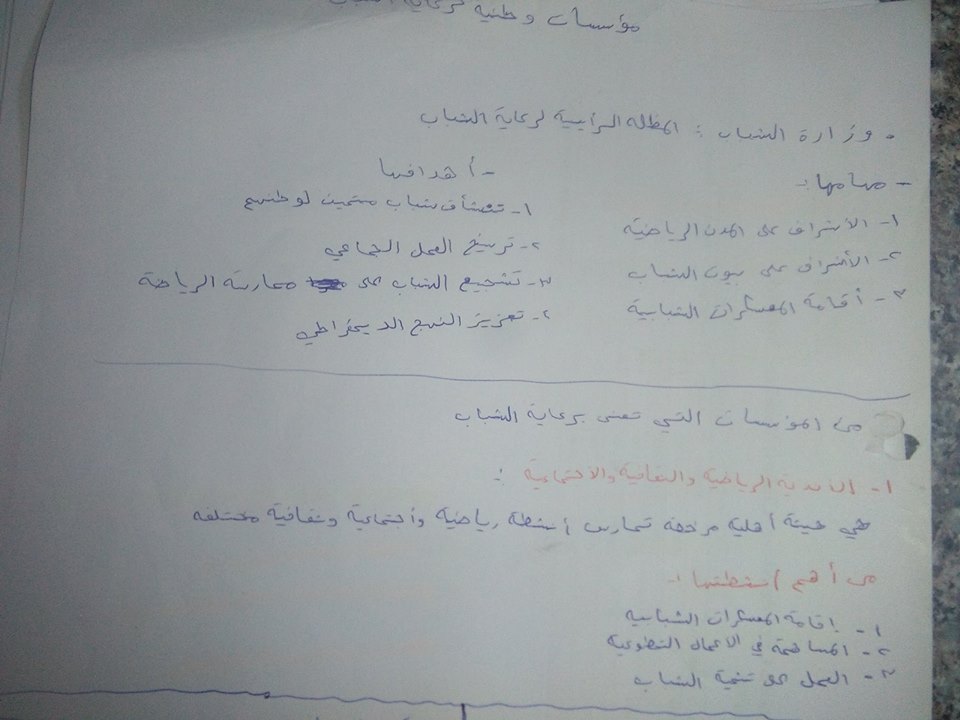 مؤسسات وطنية لرعاية الشباب
• وزارة الشباب : المظلة الرئيسية لرعاية الشباب
- مهامها :-
١- الأشراف على المدن الرياضية
٢- الأشراف على بيوت الشباب
٣- أقامة المعسكرات الشبابية
- أهدافها
١- شباب منتمين لوطنهم
٢- ترسيخ العمل الجماعي
٣- تشجيع الشباب على ممارسة الرياضة
٤- تعزيز النهج الديمقراطي
من المؤسسات التي تعنى برعاية الشباب
١- الأندية الرياضية والثقافية والأجتماعية :-
هي هيئة أهلية مرخصة تمارس أنشطة رياضية وأجتماعية وثقافية مختلفه
من أهم أنشطتها :-
١- إقامة المعسكرات الشبابيه
٢- المساهمة في الأعمال التطوعية
٣- العمل على تنمية الشباب